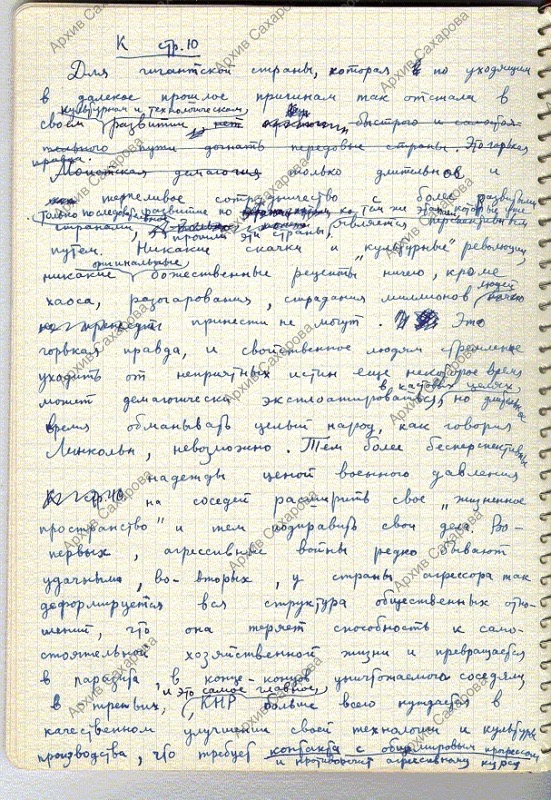 К стр. 10
Для гигантской страны, которая по уходящим
в далекое прошлое причинам так отстала в
культурном и технологическом
своем развитии, нет быстрого и самостоя-
тельного пути догнать передовые страны. Это горькая
правда.
Маоистская демагогия только длительное и
терпеливое сотрудничество с более развитыми
только последовательное развитие по тем же этапам, которые уже
странами, является перспективным
прошли эти страны,
путем. Никакие скачки и "культурные" революции,
оригинальные
никакие божественные рецепты ничего, кроме
людей
хаоса, разочарования, страдания миллионов
принести не могут. Это
горькая правда, и свойственное людям стремление
уходить от неприятных истин еще некоторое время
в каких целях,
может демагогически эксплоатироваться, но
время обманывать целый народ, как говорил
Линкольн, невозможно. Тем более бесперспективны
надежды ценой военного давления
К стр. 10
на соседей расширить свое "жизненное
пространство" и тем поправить свои дела. Во-
первых, агрессивные войны редко бывают
удачными, во-вторых, у страны агрессора так
деформируется вся структура общественных отно-
шений, что она теряет способность к само-
стоятельной хозяйственной жизни и превращается
в паразита, в конце-концов уничтожаемого соседями
и это самое главное,
в третьих, КНР больше всего нуждается в
качественном улучшении своей технологии и культуры
производства, что требует контакта с общемировым прогрессом
и противоречит агрессивному курсу
Архив Сахарова